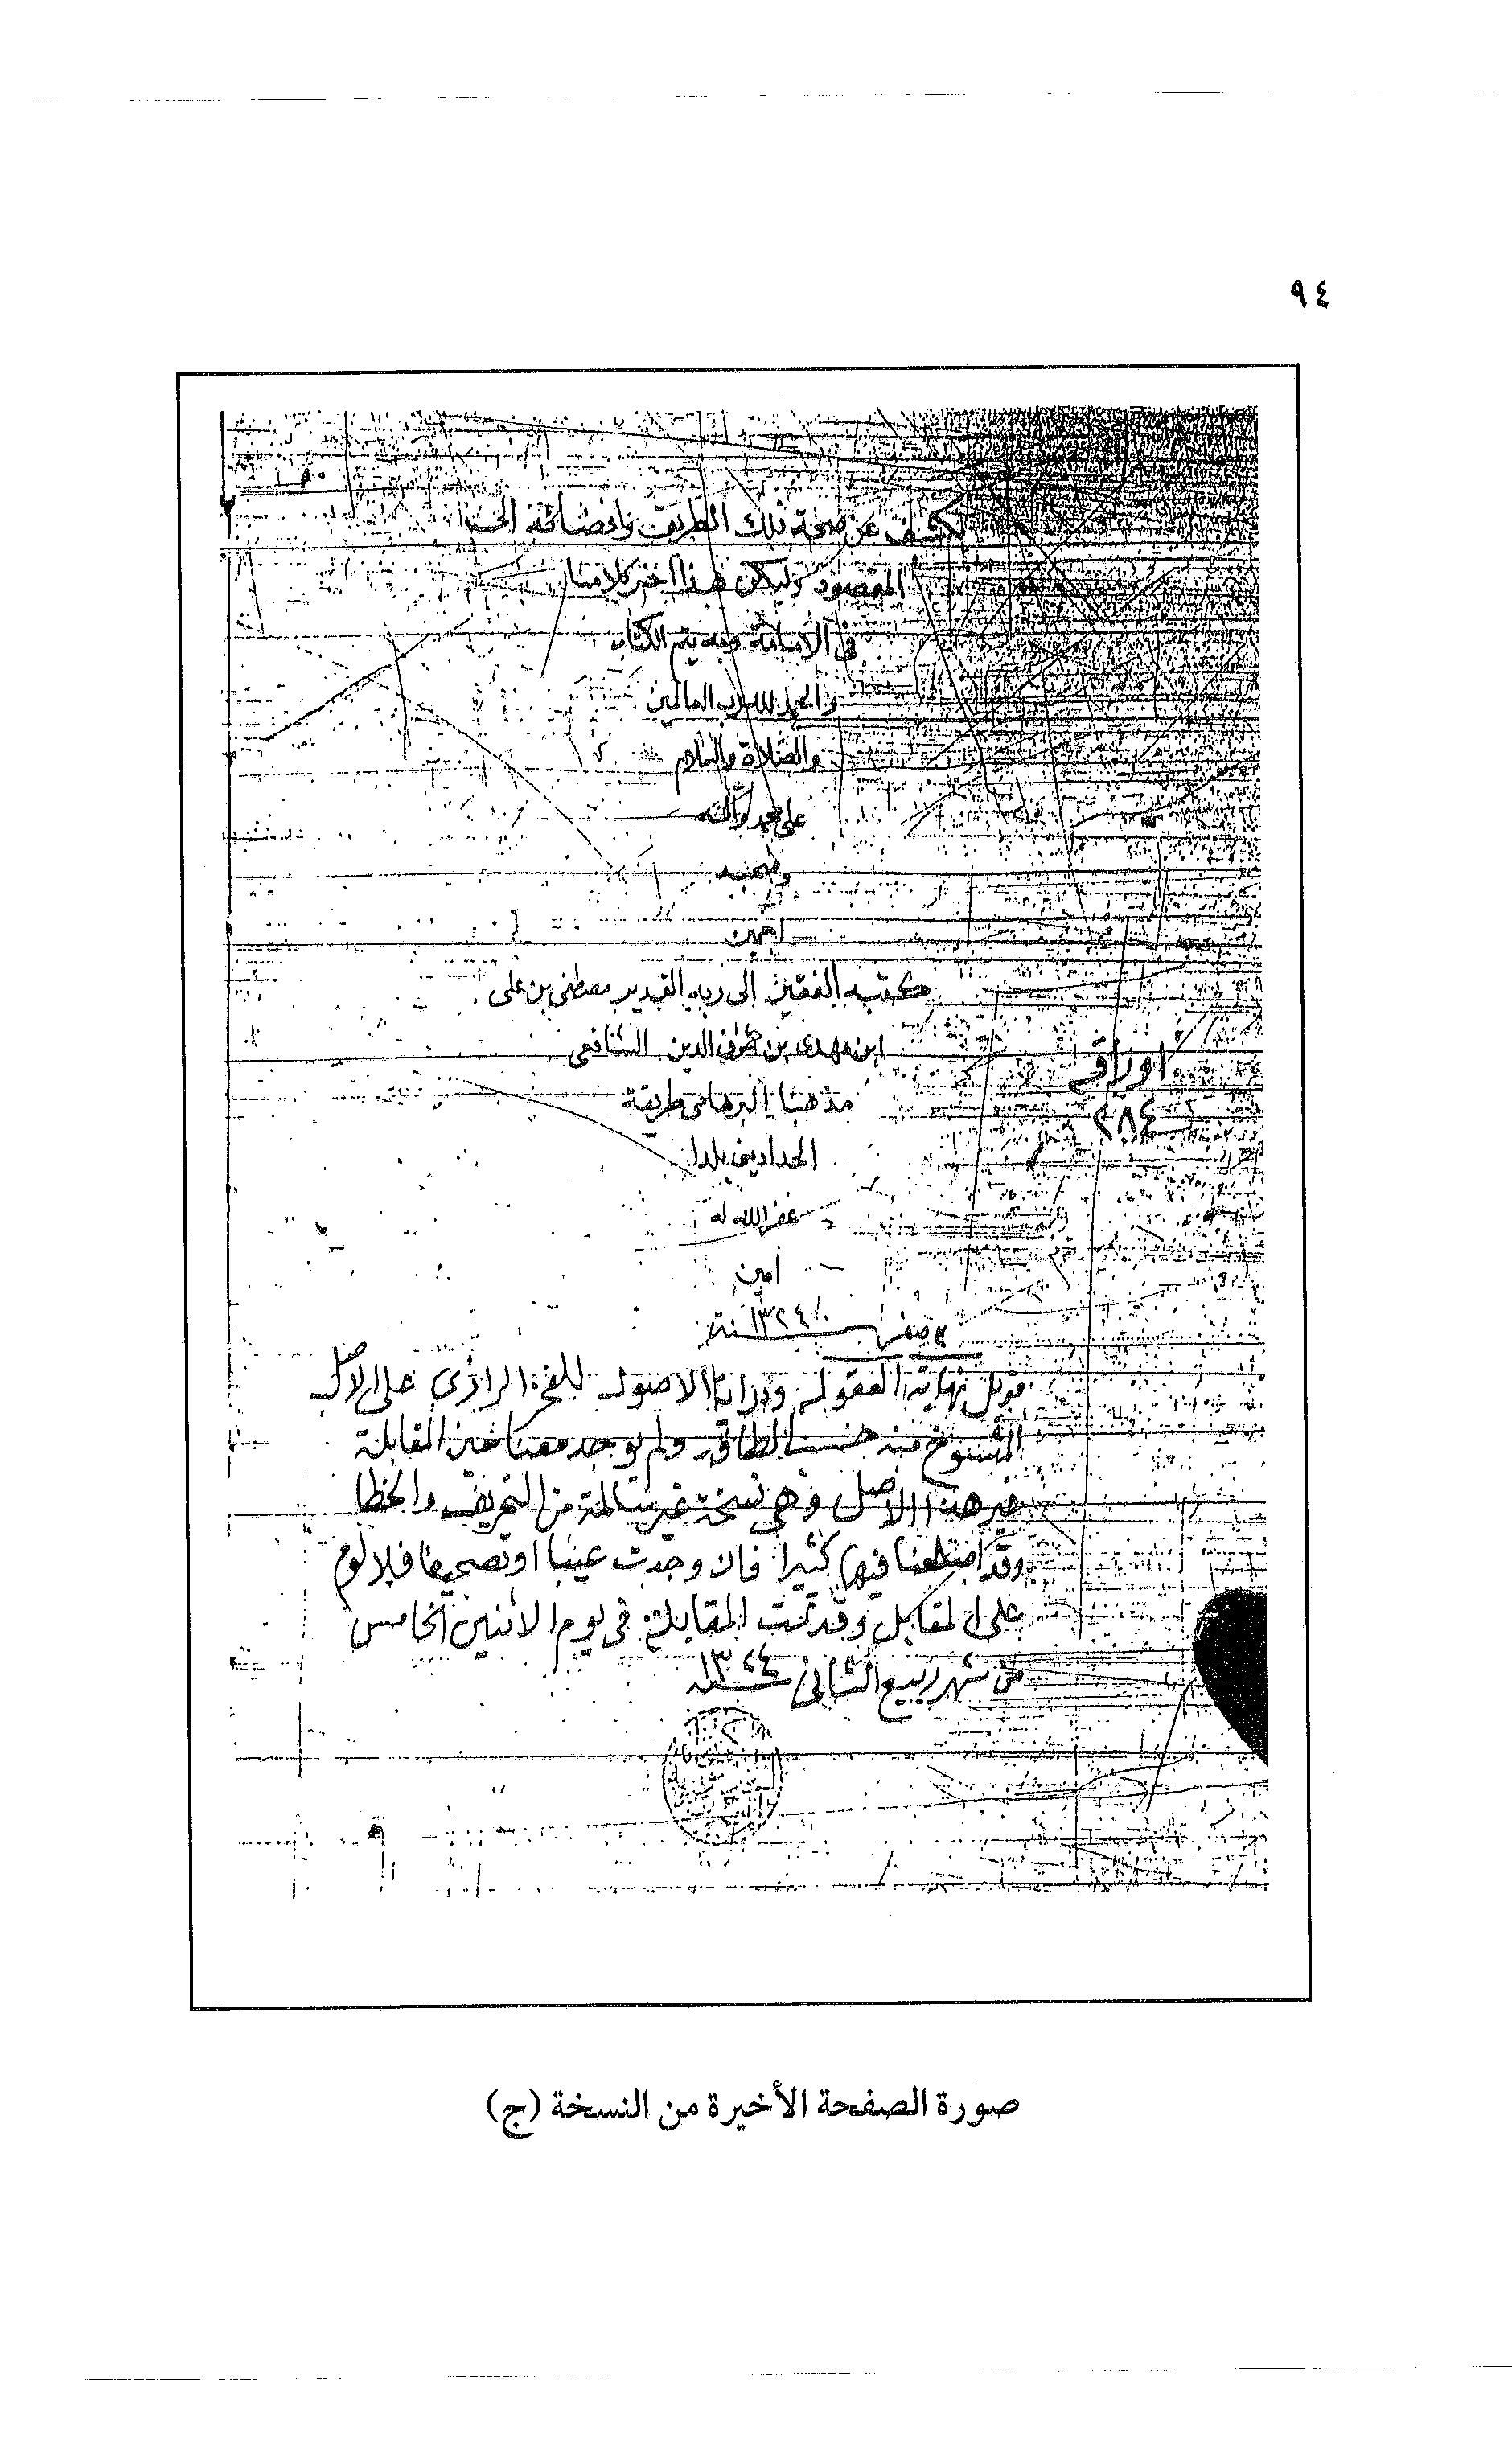 ٩٤
تكشف عن صحة تلك الطريق وافضائه الى
المقصود وليكن هذا آخر كلامنا
فى الامامة وبه يتم الكتاب
والحمد لله رب العالمين
والصلاة والسلام
على محمد وآله
وصحبه
اجمعين
كتبه الفقير الى ربه القدير مصطفى بن على
ابن مهدى بن شرف الدين الشافعى
مذهبا البرهامى طريقة
الحدادين بلدا
غفر الله له
امين
صفر سنة ١٣٢٤
اوراق
٢٨٤
قوبل نهاية العقول ودراية الاصول للفخر الرازى على الاصل
المنسوخ منه حسب الطاقة ولم يوجد معنا حين المقابلة
غير هذا الاصل وهى نسخة غير سالمة من التحريف والخطا
وقد اصلحنا فيها كثيرا فان وجدت عيبا او تصحيفا فلا لوم
على المقابل وقد تمت المقابلة فى يوم الاثنين الخامس
من شهر ربيع الثانى سنة ١٣٤٤
صورة الصفحة الأخيرة من النسخة (ج)